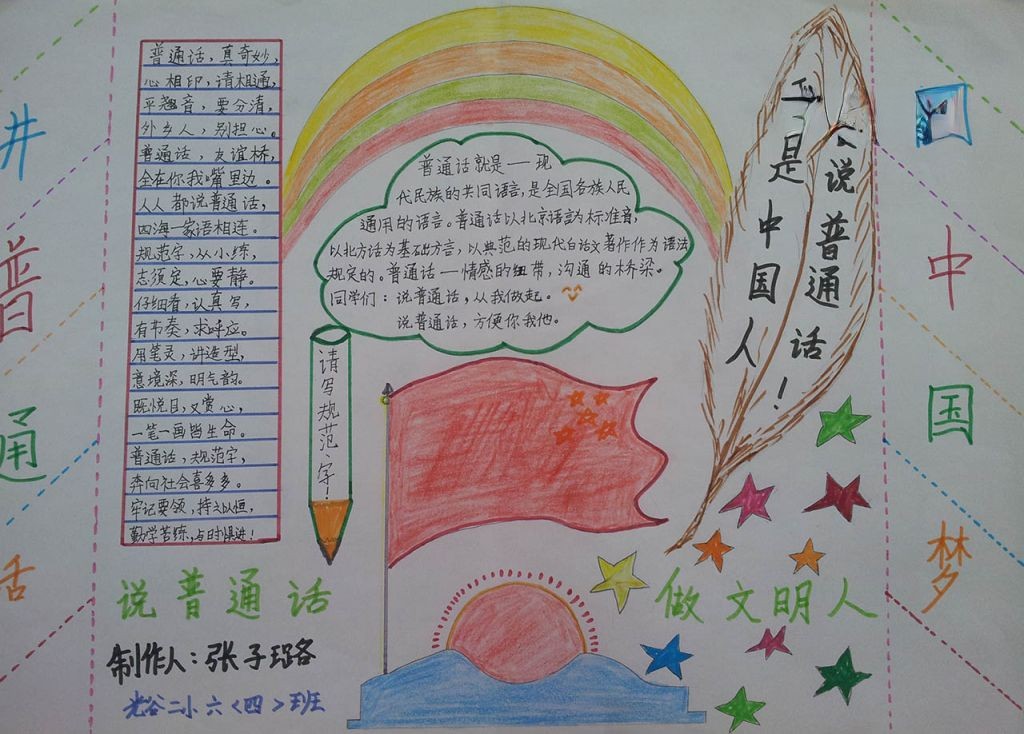 讲
普
通
话
普通话，真奇妙，
心相印，请相通，
平翘音，要分清，
外乡人，别担心。
普通话，友谊桥，
全在你我嘴里边。
人人都说普通话，
四海一家语相连。
规范字，从小练，
志须定，心要静。
仔细看，认真写，
有节奏，求呼应。
用笔灵，讲造型，
意境深，明气韵。
既悦目，又赏心，
一笔一画皆生命。
普通话，规范字，
奔向社会喜多多。
牢记要领，持之以恒，
勤学苦练，与时俱进！
普通话就是一现
代民族的共同语言，是全国各族人民
通用的语言。普通话以北京语言为标准音，
以北方话为基础方言，以典范的现代白话文著作作为语法
规定的。普通话一情感的纽带，沟通的桥梁。
同学们：说普通话，从我做起。
说普通话，方便你我他。
请写规范字！
说普通话！
是中国人
圆
中
国
梦
说普通话
做文明人
制作人：张子璐
光谷二小六〈四〉班